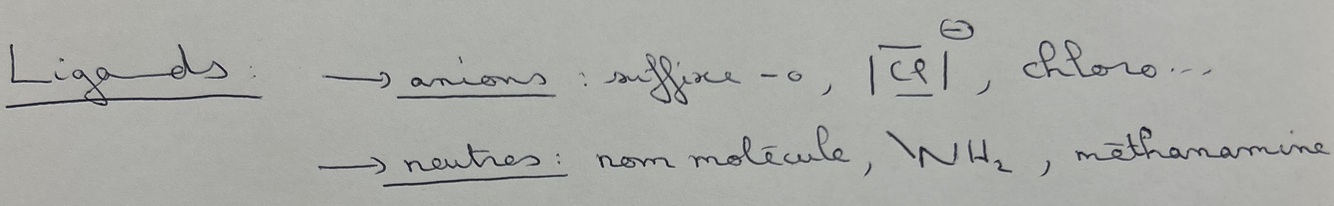 Ligands : → anions : suffixe -o, |Cl|⊖, chloro...
→ neutres : nom molécule, \NH₂, méthanamine